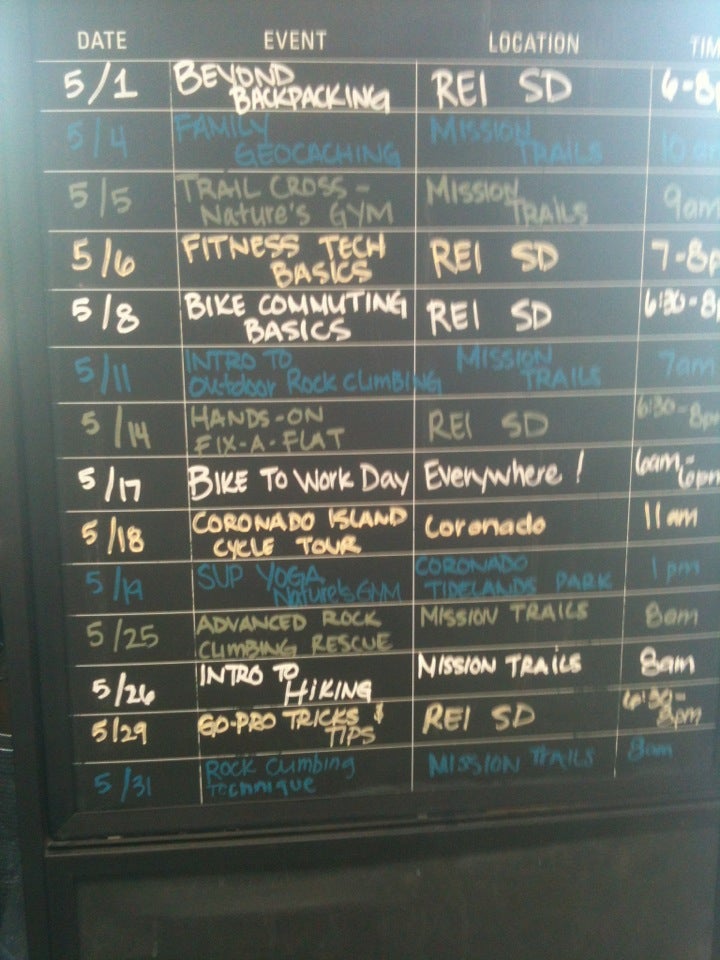 DATE EVENT LOCATION TIM
5/1 BEYOND BACKPACKING REI SD 6-8p
5/4 FAMILY GEOCACHING MISSION TRAILS 10 am
5/5 TRAIL CROSS - Nature's GYM MISSION TRAILS 9am
5/6 FITNESS TECH BASICS REI SD 7-8p
5/8 BIKE COMMUTING BASICS REI SD 6:30-8p
5/11 INTRO TO Outdoor ROCK CLIMBING MISSION TRAILS 7am
5/14 HANDS-ON FIX-A-FLAT REI SD 6:30-8pm
5/17 BIKE TO WORK DAY Everywhere! 6am-6pm
5/18 CORONADO ISLAND CYCLE TOUR Coronado 11am
5/19 SUP YOGA Nature's GYM CORONADO TIDELANDS PARK 1pm
5/25 ADVANCED ROCK CLIMBING RESCUE MISSION TRAILS 8am
5/26 INTRO TO HIKING MISSION TRAILS 8am
5/29 GO-PRO TRICKS & TIPS REI SD 6:30-8pm
5/31 Rock Climbing Technique MISSION TRAILS 8am